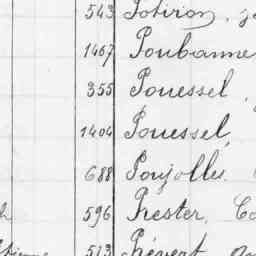 543 Potiron,
1467 Poubanne
355 Pouessel,
1404 Pouessel,
688 Poujolle,
596 Prester,
513 Prévert